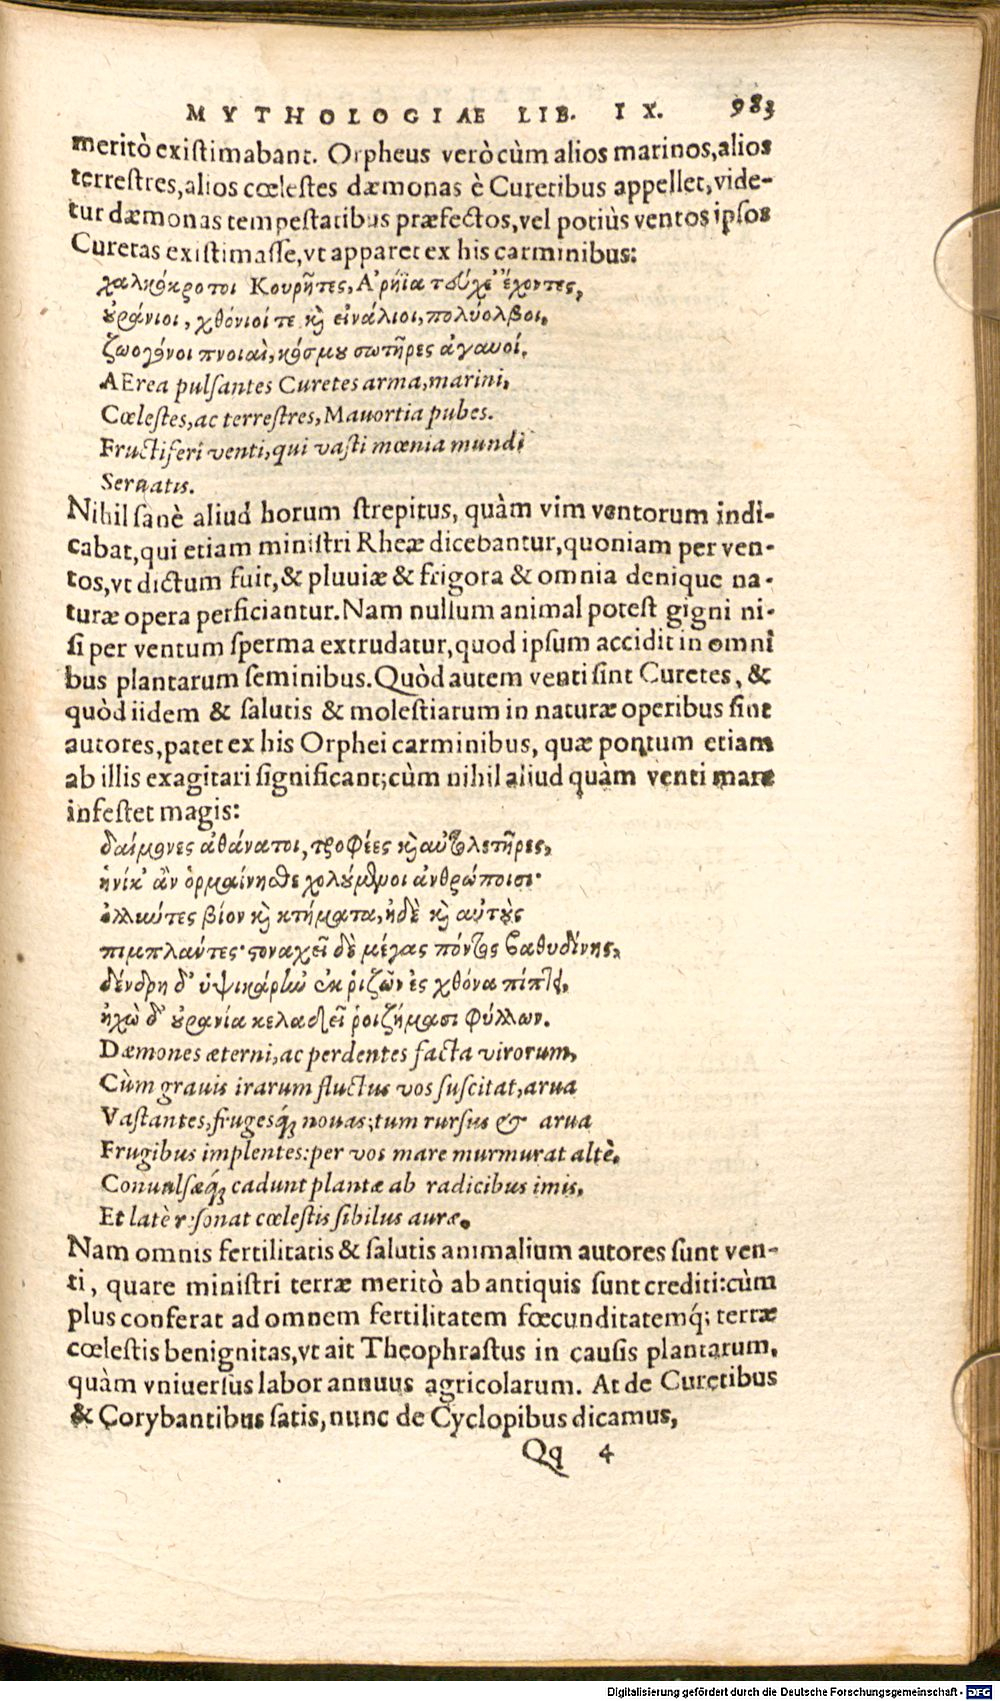 MYTHOLOGIAE LIB. IX. 983
meritò existimabant. Orpheus verò cùm alios marinos, alios
terrestres, alios cœlestes dæmonas è Curetibus appellet, vide-
tur dæmonas tempestatibus præfectos, vel potiùs ventos ipsos
Curetas existimasse, vt apparet ex his carminibus:
χαλκόκροτοι Κουρῆτες, Ἀρήϊα τεύχε' ἔχοντες,
οὐράνιοι, χθόνιοί τε καὶ εἰνάλιοι, πολύολβοι,
ζωογόνοι πνοιαὶ, κόσμου σωτῆρες ἀγαυοί.
AErea pulsantes Curetes arma, marini,
Cœlestes, ac terrestres, Mauortia pubes.
Fructiferi venti, qui vasti mœnia mundi
Seruatis.
Nihil sanè aliud horum strepitus, quàm vim ventorum indi-
cabat, qui etiam ministri Rheæ dicebantur, quoniam per ven-
tos, vt dictum fuit, & pluuiæ & frigora & omnia denique na-
turæ opera perficiantur. Nam nullum animal potest gigni ni-
si per ventum sperma extrudatur, quod ipsum accidit in omni
bus plantarum seminibus. Quòd autem venti sint Curetes, &
quòd iidem & salutis & molestiarum in naturæ operibus sint
autores, patet ex his Orphei carminibus, quæ pontum etiam
ab illis exagitari significant; cùm nihil aliud quàm venti mare
infestet magis:
δαίμονες ἀθάνατοι, τροφέες καὶ αὐτολετῆρες,
ἡνίκ' ἂν ὁρμαίνησθε χολούμενοι ἀνθρώποισι·
ὀλλύντες βίον καὶ κτήματα, ἠδὲ καὶ αὐτοὺς
πιμπλαύτες· στοναχεῖ δὲ μέγας πόντος βαθυδίνης,
δένδρη δ' ὑψικάρην' ἐκ ῥιζῶν ἐς χθόνα πίπτει,
ἠχὼ δ' οὐρανία κελαδεῖ ῥοιζήμασι φύλλων.
Dæmones æterni, ac perdentes facta virorum,
Cùm grauis irarum fluctus vos suscitat, arua
Vastantes, frugesq́; nouas; tum rursus & arua
Frugibus implentes: per vos mare murmurat altè.
Conuulsæq́; cadunt plantæ ab radicibus imis,
Et latè resonat cœlestis sibilus auræ.
Nam omnis fertilitatis & salutis animalium autores sunt ven-
ti, quare ministri terræ meritò ab antiquis sunt crediti: cùm
plus conferat ad omnem fertilitatem fœcunditatemq́; terræ
cœlestis benignitas, vt ait Theophrastus in causis plantarum,
quàm vniuersus labor annuus agricolarum. At de Curetibus
& Corybantibus satis, nunc de Cyclopibus dicamus,
Qq 4
Digitalisierung gefördert durch die Deutsche Forschungsgemeinschaft - DFG